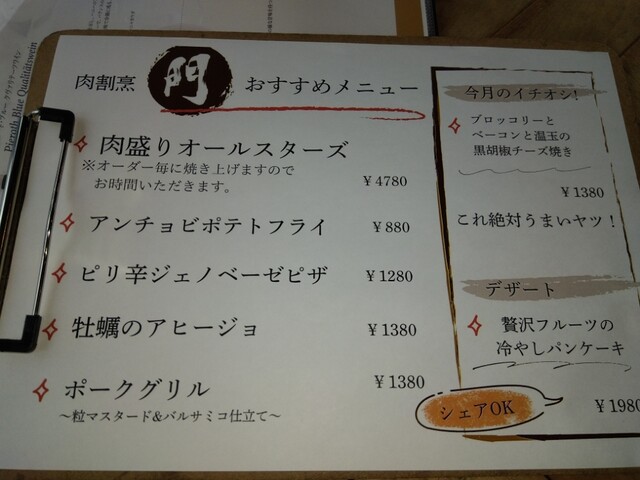 肉割烹 門 おすすめメニュー
肉盛りオールスターズ
※オーダー毎に焼き上げますので
お時間いただきます。
¥4780
アンチョビポテトフライ ¥880
ピリ辛ジェノベーゼピザ ¥1280
牡蠣のアヒージョ ¥1380
ポークグリル ¥1380
～粒マスタード&バルサミコ仕立て～
今月のイチオシ!
ブロッコリーと
ベーコンと温玉の
黒胡椒チーズ焼き
¥1380
これ絶対うまいヤツ!
デザート
贅沢フルーツの
冷やしパンケーキ
シェアOK
¥1980
Blue Qualitätswein